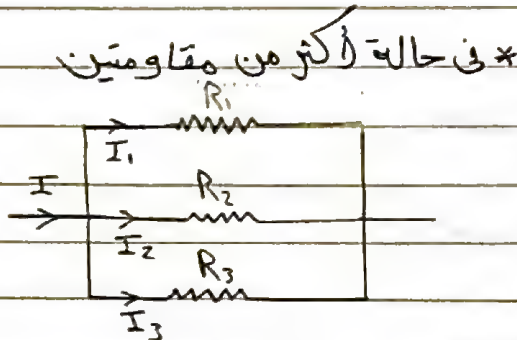 * فى حالة أكثر من مقاومتين
R₁
I₁
I
R₂
I₂
R₃
I₃